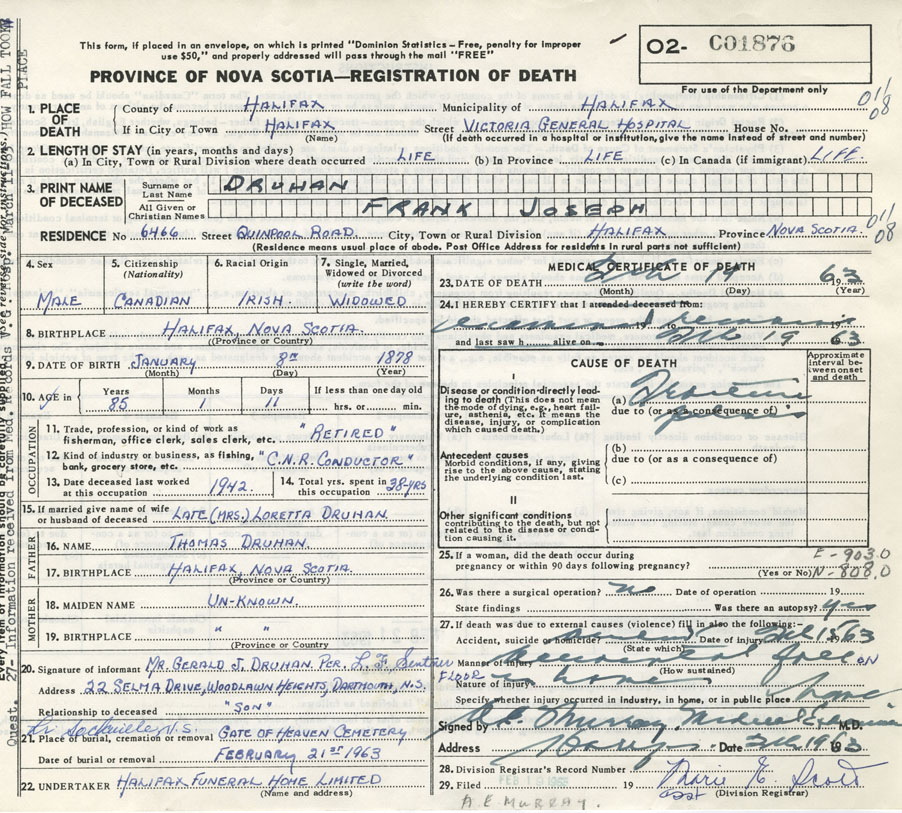 This form, if placed in an envelope, on which is printed "Dominion Statistics – Free, penalty for improper
use $50," and properly addressed will pass through the mail "FREE"
02- C01876
PROVINCE OF NOVA SCOTIA—REGISTRATION OF DEATH
For use of the Department only
1. PLACE OF DEATH
County of HALIFAX Municipality of HALIFAX
If in City or Town HALIFAX Street VICTORIA GENERAL HOSPITAL House No.
(Name) (If death occurred in a hospital or institution, give the name instead of street and number)
011
08
2. LENGTH OF STAY (in years, months and days)
(a) In City, Town or Rural Division where death occurred LIFE (b) In Province LIFE (c) In Canada (if immigrant) LIFE.
3. PRINT NAME OF DECEASED
Surname or Last Name DRUHAN
All Given or Christian Names FRANK JOSEPH
RESIDENCE No 6466 Street QUINPOOL ROAD. City, Town or Rural Division HALIFAX Province NOVA SCOTIA.
(Residence means usual place of abode. Post Office Address for residents in rural parts not sufficient)
011
08
4. Sex MALE
5. Citizenship (Nationality) CANADIAN
6. Racial Origin IRISH.
7. Single, Married, Widowed or Divorced (write the word) WIDOWED
8. BIRTHPLACE HALIFAX, NOVA SCOTIA.
(Province or Country)
9. DATE OF BIRTH JANUARY 8TH 1878
(Month) (Day) (Year)
10. AGE in Years 85 Months 1 Days 11 If less than one day old hrs. or min.
OCCUPATION
11. Trade, profession, or kind of work as fisherman, office clerk, sales clerk, etc. "RETIRED"
12. Kind of industry or business, as fishing, bank, grocery store, etc. "C.N.R. CONDUCTOR"
13. Date deceased last worked at this occupation 1942.
14. Total yrs. spent in this occupation 38 YRS
15. If married give name of wife or husband of deceased LATE (MRS.) LORETTA DRUHAN.
FATHER
16. NAME THOMAS DRUHAN.
17. BIRTHPLACE HALIFAX, NOVA SCOTIA.
(Province or Country)
MOTHER
18. MAIDEN NAME UN-KNOWN.
19. BIRTHPLACE " "
(Province or Country)
20. Signature of informant MR. GERALD J. DRUHAN. PER. L. F.
Address 22 SELMA DRIVE, WOODLAWN HEIGHTS, DARTMOUTH, N.S.
Relationship to deceased "SON"
Lr. Sackville N.S.
21. Place of burial, cremation or removal GATE OF HEAVEN CEMETERY
Date of burial or removal FEBRUARY 21ST 1963
22. UNDERTAKER HALIFAX FUNERAL HOME LIMITED
(Name and address)
MEDICAL CERTIFICATE OF DEATH
23. DATE OF DEATH Feb 19 1963
(Month) (Day) (Year)
24. I HEREBY CERTIFY that I attended deceased from:
examined remains
19 to 19
and last saw h alive on Feb 19 63
CAUSE OF DEATH
Approximate interval between onset and death
I
Disease or condition directly leading to death (This does not mean the mode of dying, e.g., heart failure, asthenia, etc. It means the disease, injury, or complication which caused death.)
(a)
due to (or as a consequence of)
Antecedent causes
Morbid conditions, if any, giving rise to the above cause, stating the underlying condition last.
(b)
due to (or as a consequence of)
(c)
II
Other significant conditions contributing to the death, but not related to the disease or condition causing it.
25. If a woman, did the death occur during pregnancy or within 90 days following pregnancy? (Yes or No)
E-903.0
N-808.0
26. Was there a surgical operation? no Date of operation 19
State findings Was there an autopsy? yes
27. If death was due to external causes (violence) fill in also the following:-
Accident, suicide or homicide? Date of injury Feb 1963
(State which)
Manner of injury accidental fall ON
FLOOR in home
(How sustained)
Nature of injury
Specify whether injury occurred in industry, in home, or in public place home
Signed by Murray Medical Examiner M.D.
Address Date Feb 19 1963
28. Division Registrar's Record Number
FEB 19
29. Filed 19 Marie E. Scott
(Division Registrar)
A.E. MURRAY.
27- Information received from Med. Records March 11-63 HOW FALL TOOK
PLACE
Quest.